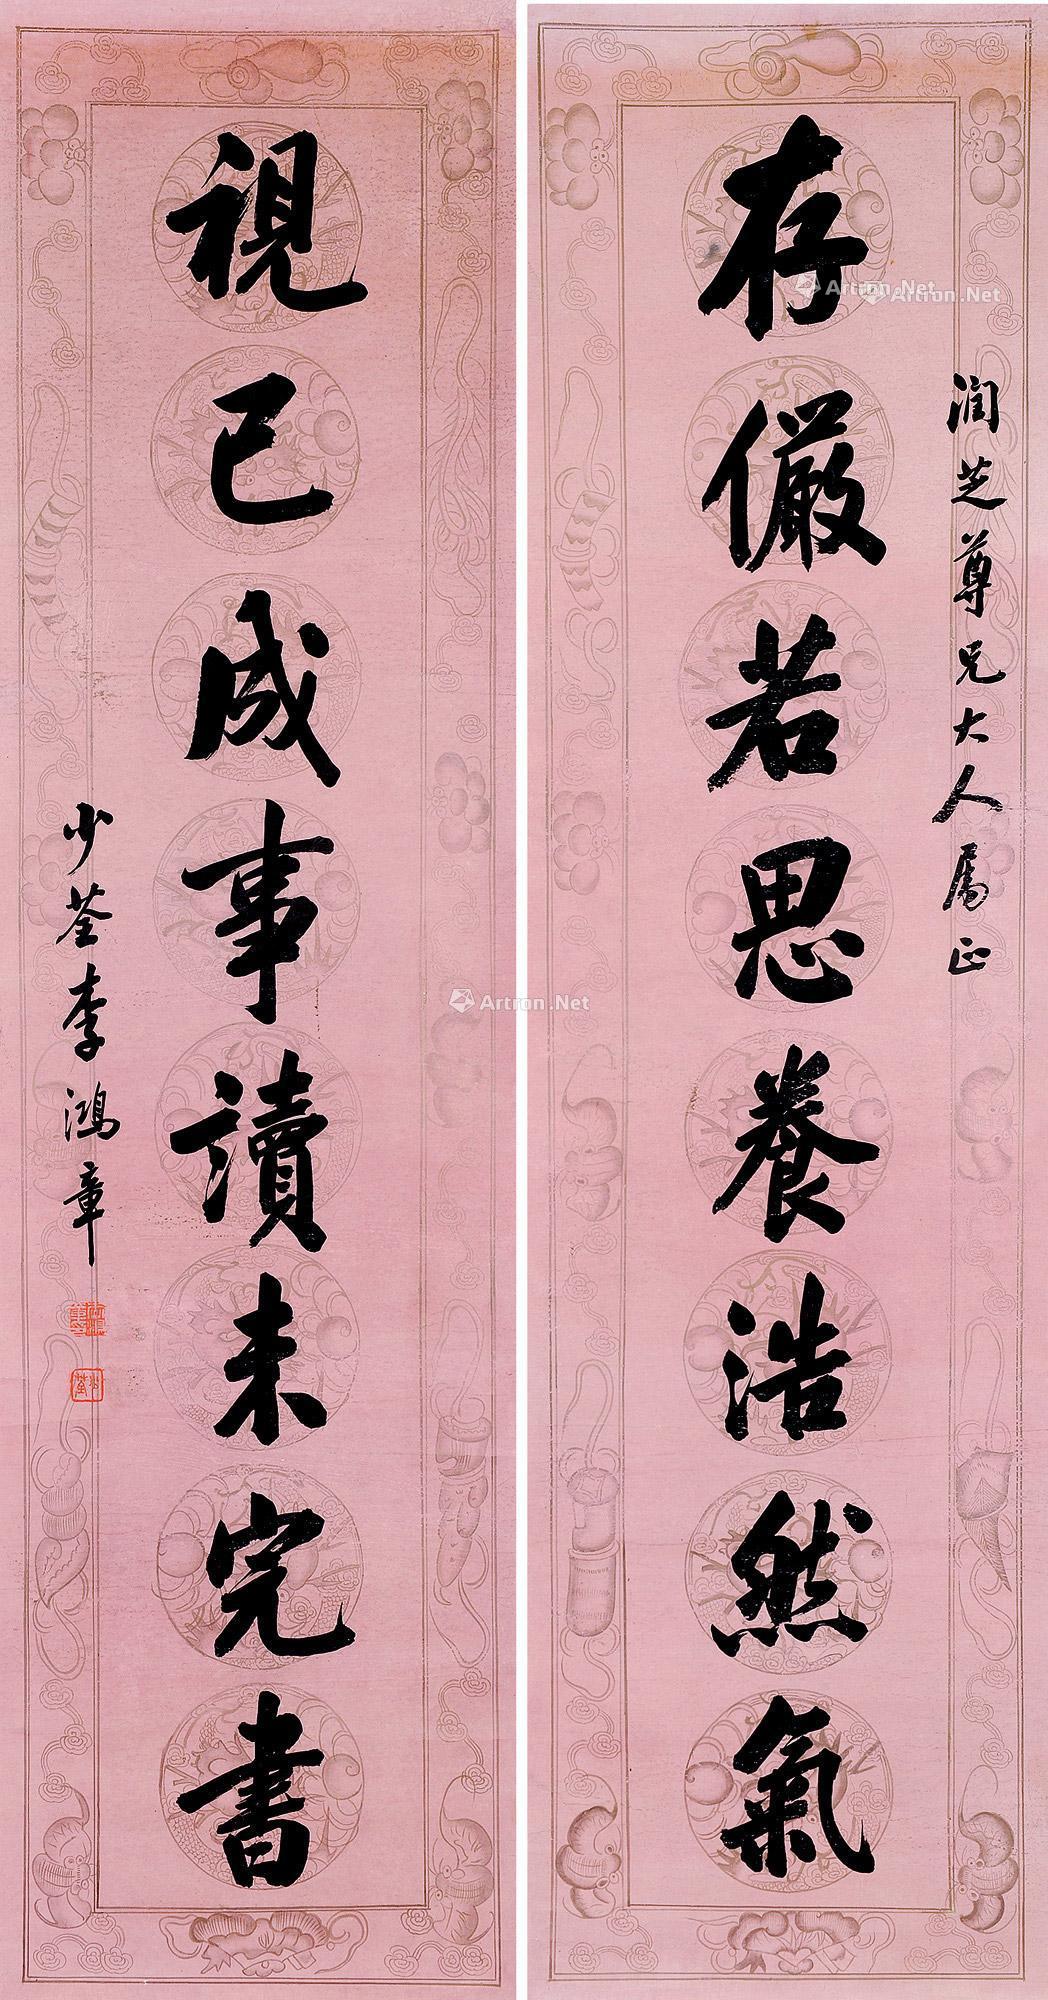 润芝尊兄大人属正
存儼若思養浩然氣
視已成事讀未完書
少荃李鴻章
少荃
Artron.Net
Artron.Net
Artron.Net